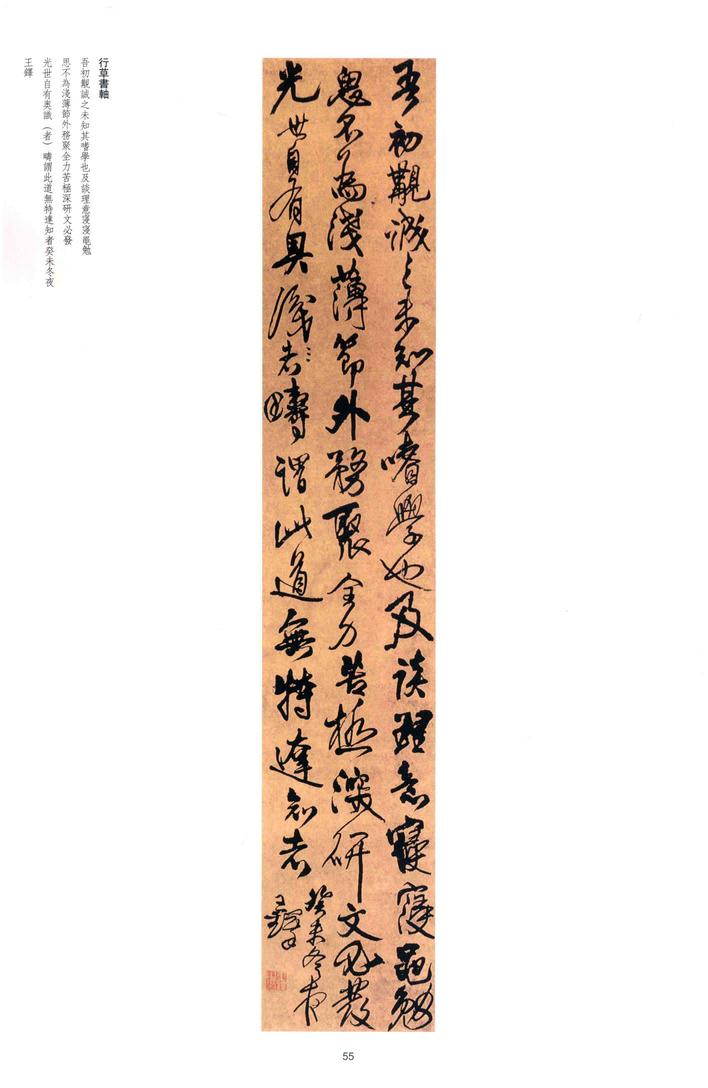 行草書軸
吾初觀誠之未知其嗜學也及談理意寖寖黽勉
思不為淺薄節外務聚全力苦極深研文必發
光世自有奥識（者）疇謂此道無特達知者癸未冬夜
王鐸
吾初觀誠之未知其嗜學也及談理意寖寖黽勉
思不為淺薄節外務聚全力苦極深研文必發
光世自有奥識者疇謂此道無特達知者癸未冬夜
王鐸
55